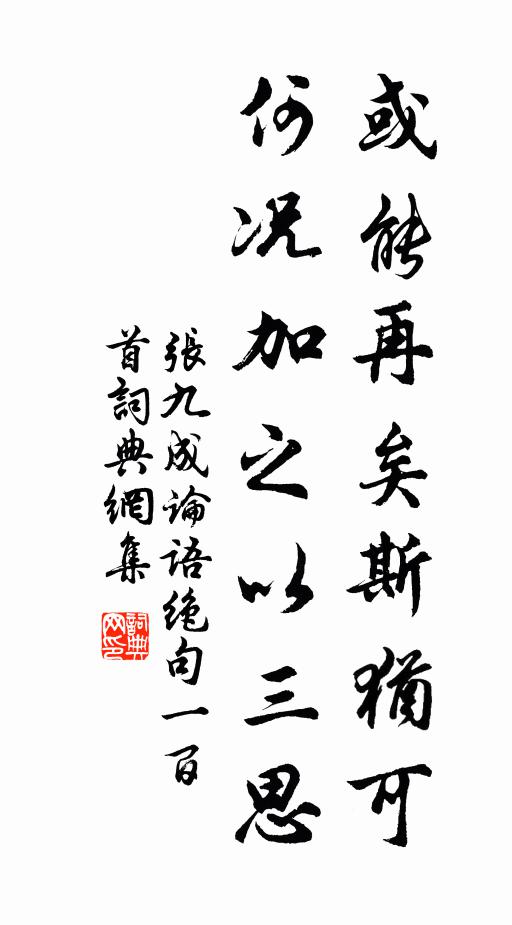 或能再矣斯猶可
何况加之以三思
張九成論語絶句一百
首詞典網集
詞典网印